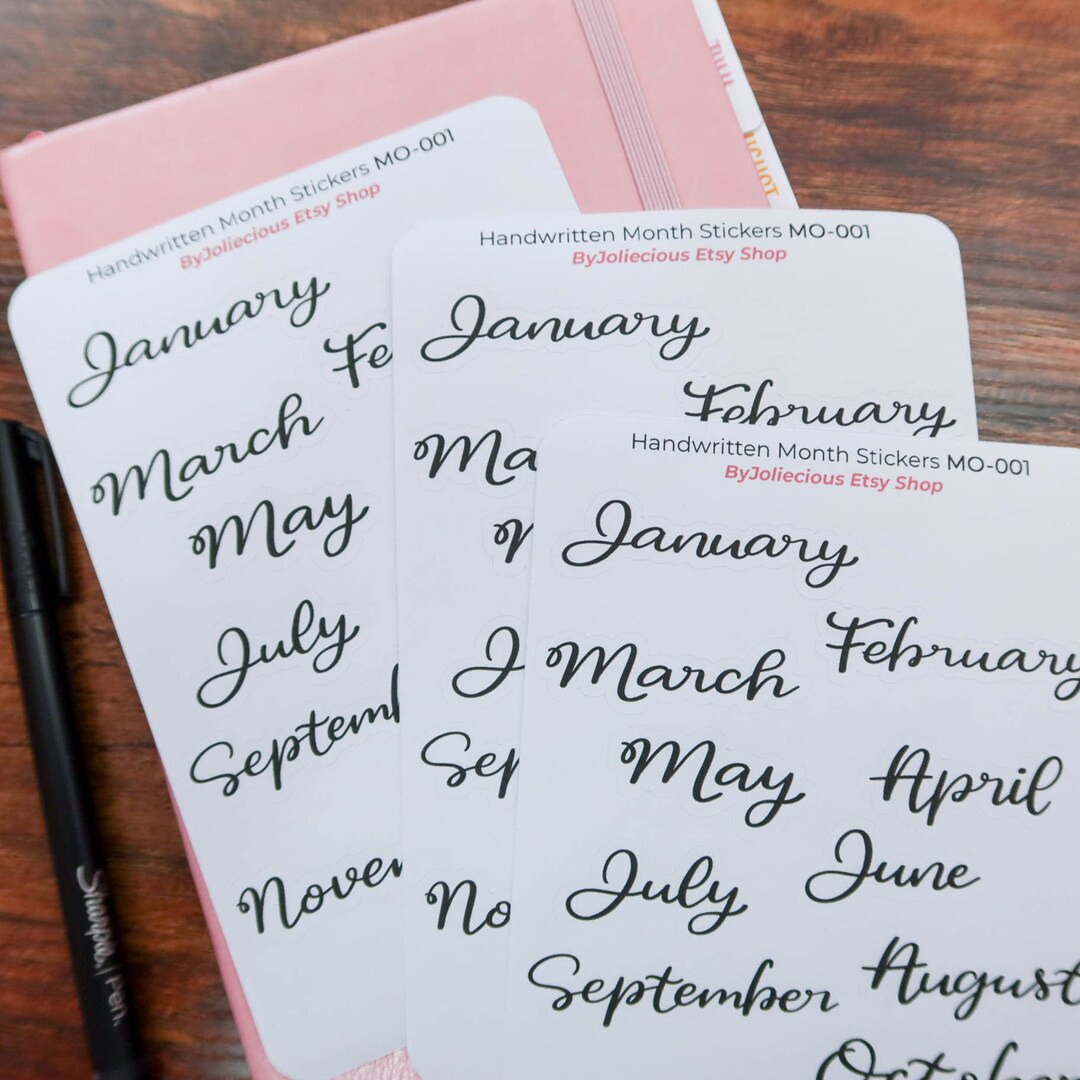 Handwritten Month Stickers MO-001
ByJoliecious Etsy Shop
January
Fe
March
May
July
Septemb
Novem
Handwritten Month Stickers MO-001
ByJoliecious Etsy Shop
January
February
Ma
M
J
Sep
No
Handwritten Month Stickers MO-001
ByJoliecious Etsy Shop
January
February
March
May
April
July
June
September
August
October
Sharpie | Pen.